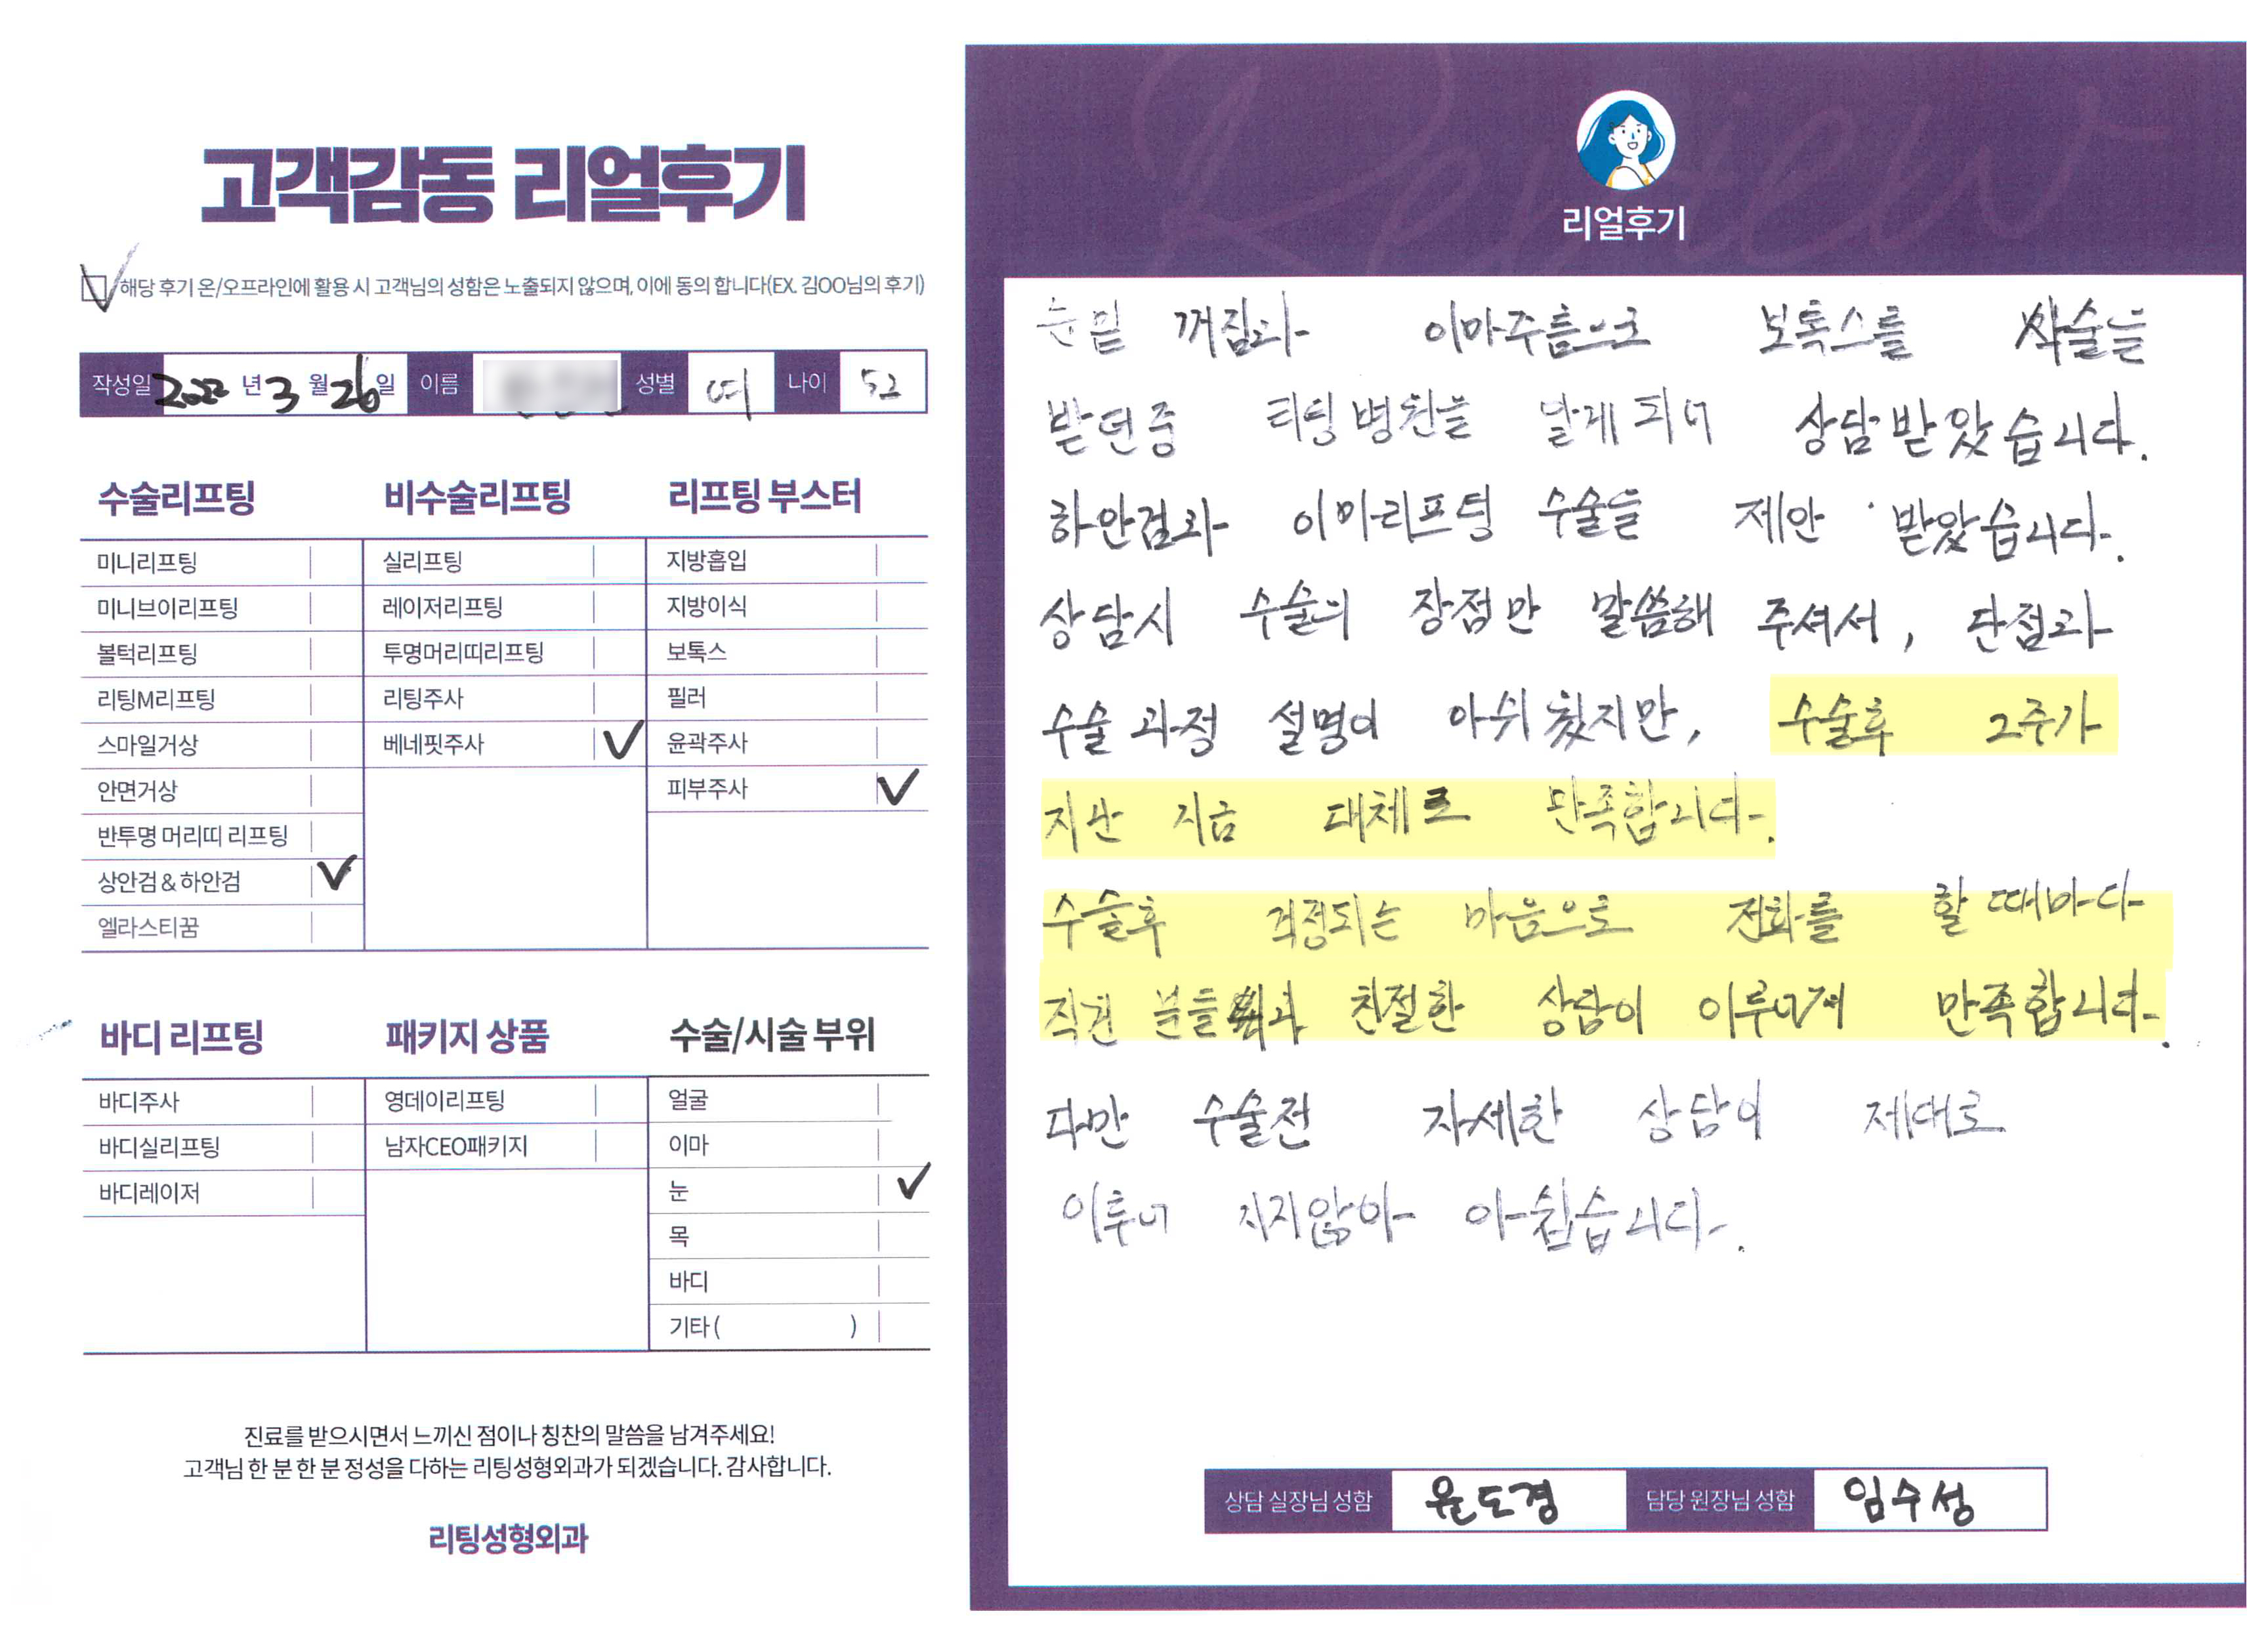 고객감동 리얼후기
해당 후기 온/오프라인에 활용 시 고객님의 성함은 노출되지 않으며, 이에 동의 합니다(EX. 김OO님의 후기)
작성일 2022 년 3 월 26 일 이름 성별 여 나이 52
수술리프팅
미니리프팅
미니브이리프팅
볼턱리프팅
리팅M리프팅
스마일거상
안면거상
반투명 머리띠 리프팅
상안검 & 하안검 ✓
엘라스티꿈
비수술리프팅
실리프팅
레이저리프팅
투명머리띠리프팅
리팅주사
베네핏주사 ✓
리프팅 부스터
지방흡입
지방이식
보톡스
필러
윤곽주사
피부주사 ✓
바디 리프팅
바디주사
바디실리프팅
바디레이저
패키지 상품
영데이리프팅
남자CEO패키지
수술/시술 부위
얼굴
이마
눈 ✓
목
바디
기타 ( )
진료를 받으시면서 느끼신 점이나 칭찬의 말씀을 남겨주세요!
고객님 한 분 한 분 정성을 다하는 리팅성형외과가 되겠습니다. 감사합니다.
리팅성형외과
Review
리얼후기
눈밑 꺼짐과 이마주름으로 보톡스를 시술을
받던중 리팅병원을 알게 되어 상담받았습니다.
하안검과 이마리프팅 수술을 제안 받았습니다.
상담시 수술의 장점만 말씀해 주셔서, 단점과
수술 과정 설명이 아쉬웠지만, 수술후 2주가
지난 지금 대체로 만족합니다.
수술후 걱정되는 마음으로 전화를 할 때마다
직원 분들과 친절한 상담이 이루어져 만족합니다.
다만 수술전 자세한 상담이 제대로
이루어 지지않아 아쉽습니다.
상담 실장님 성함 윤도경 담당 원장님 성함 임수성